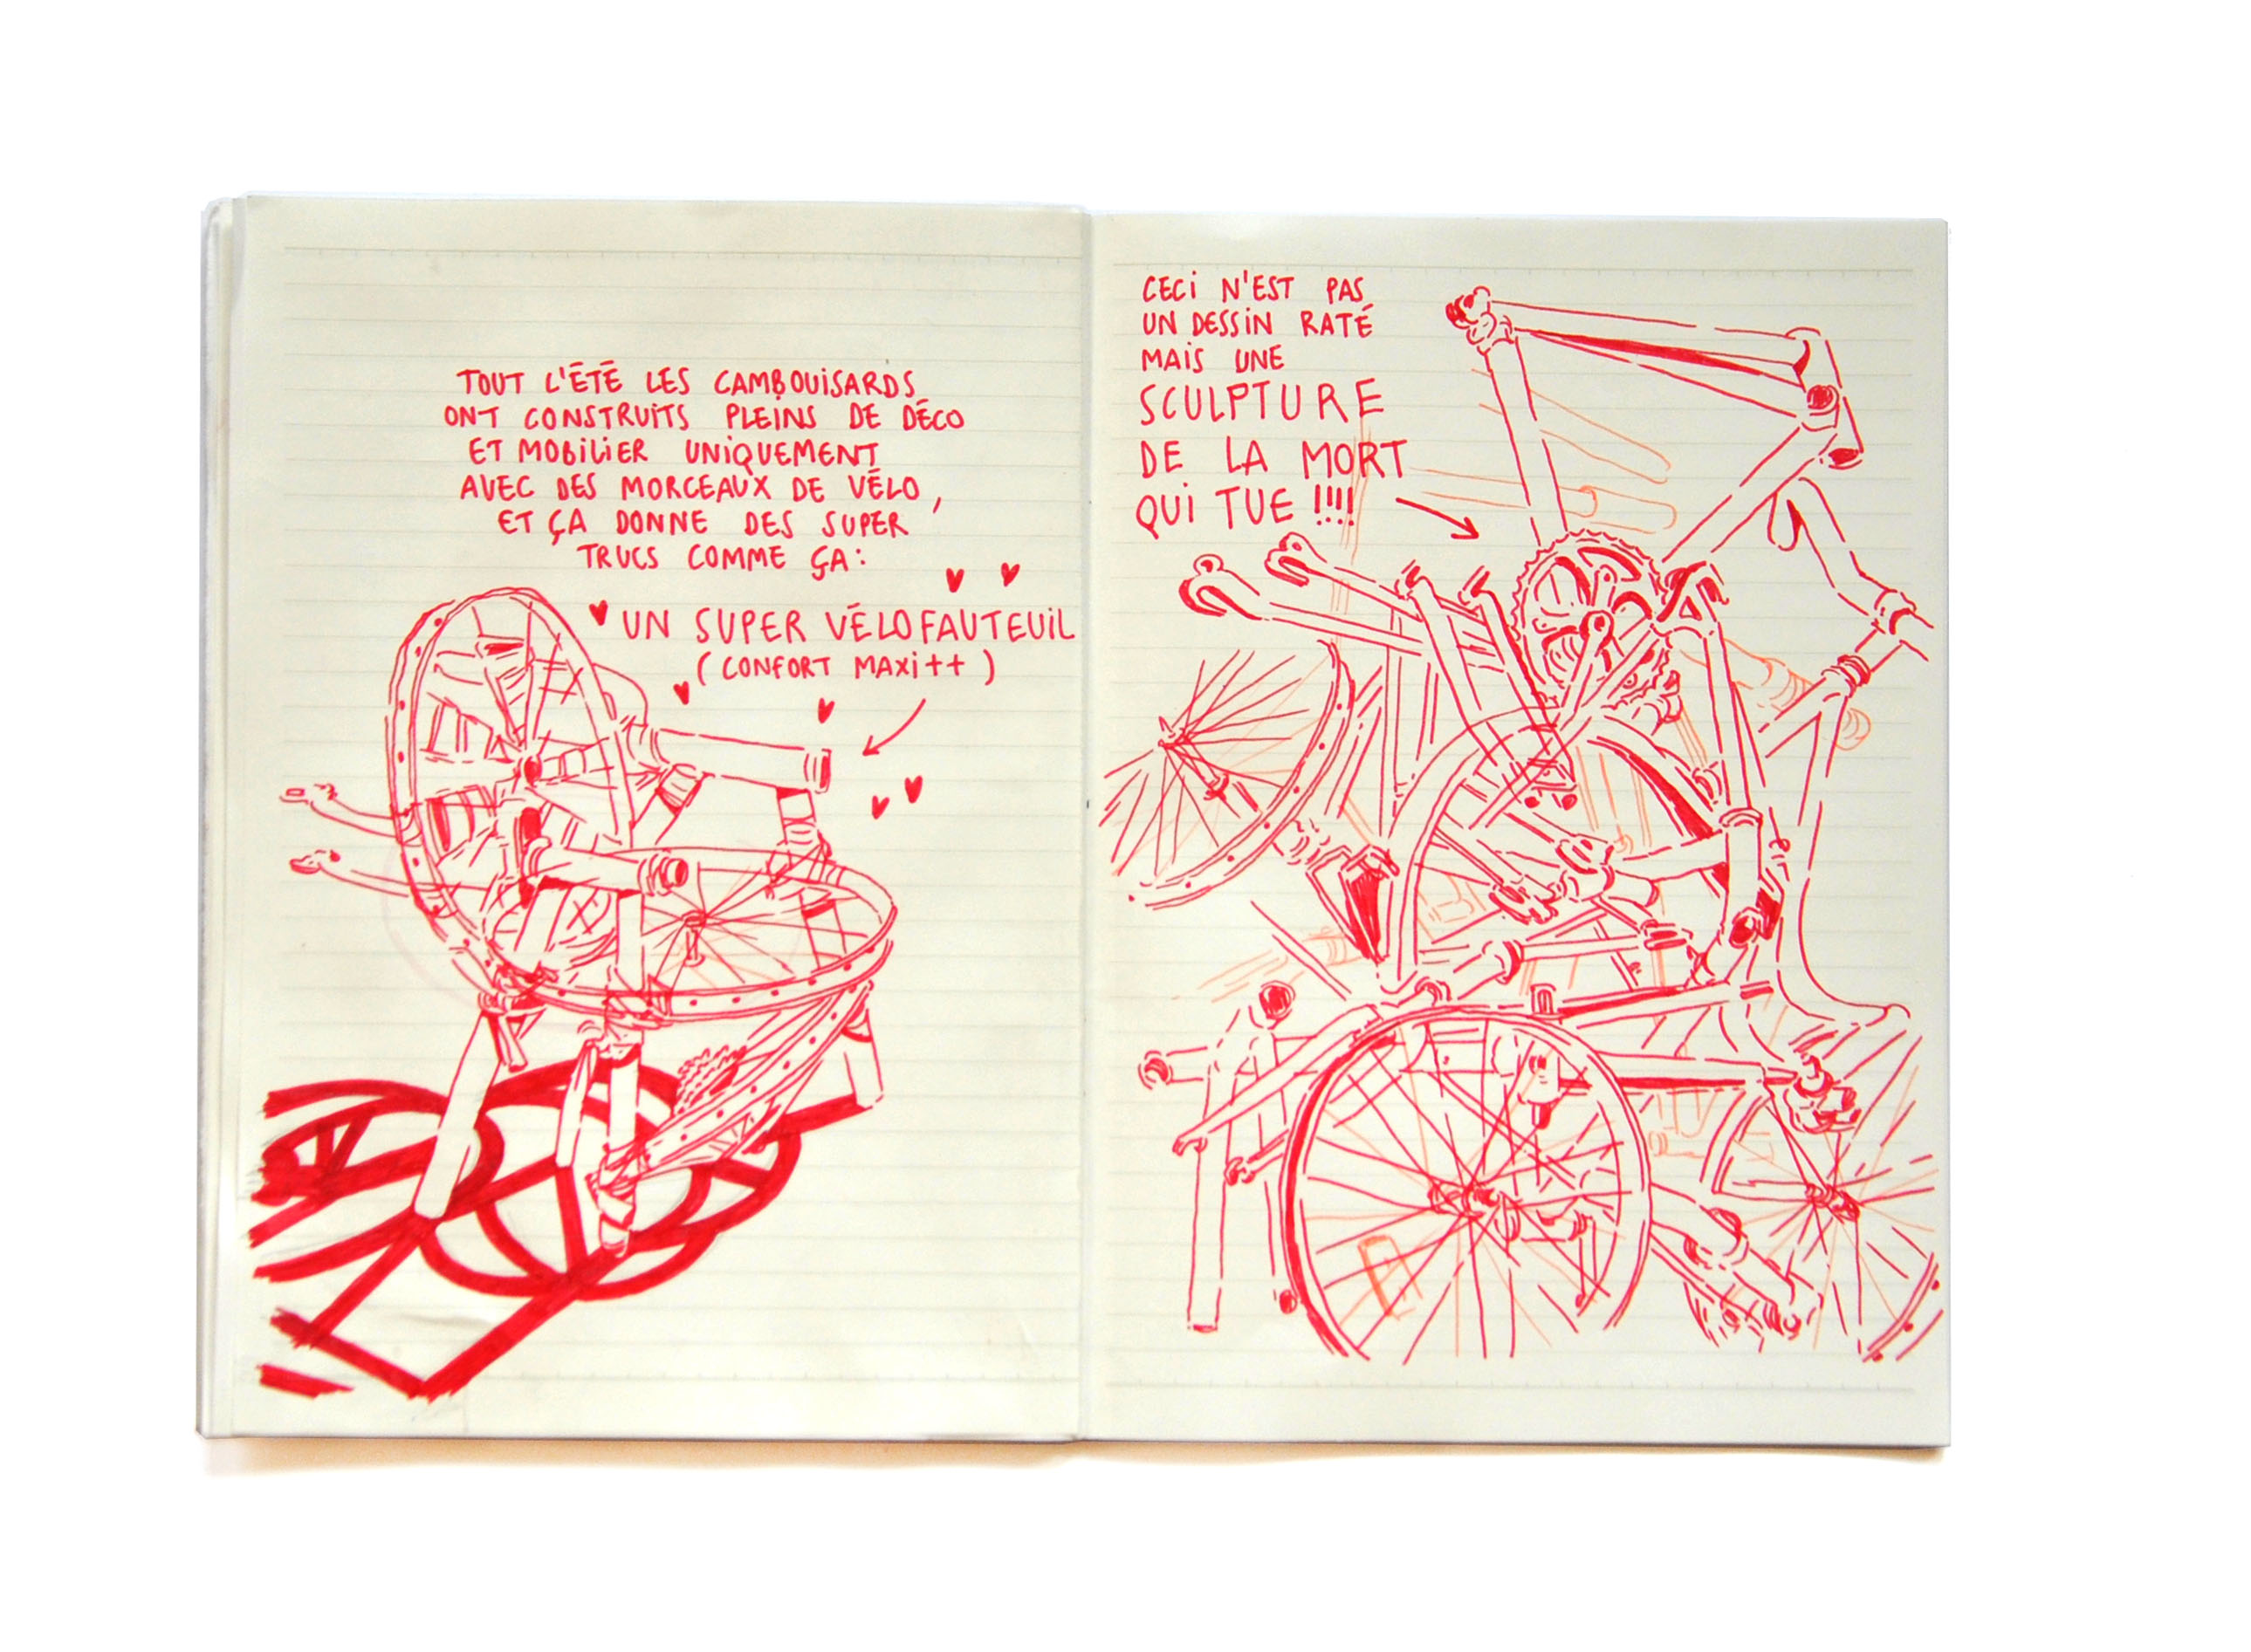 TOUT L'ÉTÉ LES CAMBOUISARDS
ONT CONSTRUITS PLEINS DE DÉCO
ET MOBILIER UNIQUEMENT
AVEC DES MORCEAUX DE VÉLO,
ET ÇA DONNE DES SUPER
TRUCS COMME ÇA:
UN SUPER VÉLOFAUTEUIL
(CONFORT MAXI++)
CECI N'EST PAS
UN DESSIN RATÉ
MAIS UNE
SCULPTURE
DE LA MORT
QUI TUE !!!!